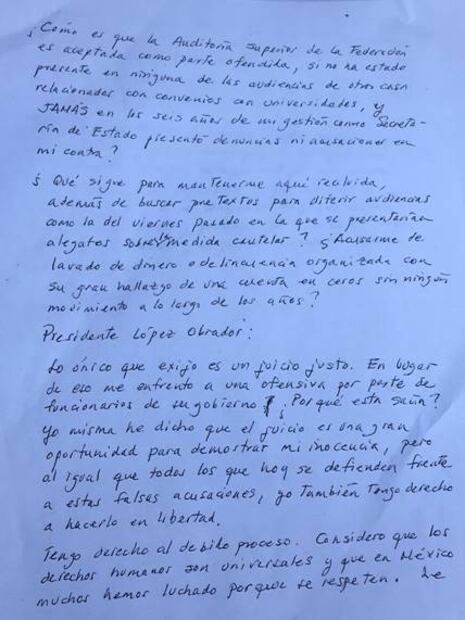 ¿Cómo es que la Auditoría Superior de la Federación
es aceptada como parte ofendida, si no ha estado
presente en ninguna de las audiencias de otros casos
relacionados con convenios con universidades, y
JAMÁS en los seis años de mi gestión como Secreta-
ria de Estado presentó denuncias ni acusaciones en
mi contra?
¿Qué sigue para mantenerme aquí recluida,
además de buscar pretextos para diferir audiencias
como la del viernes pasado en la que se presentarían
alegatos sobre la medida cautelar? ¿Acusarme de
lavado de dinero o delincuencia organizada con
su gran hallazgo de una cuenta en ceros sin ningún
movimiento a lo largo de los años?
Presidente López Obrador:
Lo único que exijo es un juicio justo. En lugar
de eso me enfrento a una ofensiva por parte de
funcionarios de su gobierno. ¿Por qué esta saña?
Yo misma he dicho que el juicio es una gran
oportunidad para demostrar mi inocencia, pero
al igual que todos los que hoy se defienden frente
a estas falsas acusaciones, yo también tengo derecho
a hacerlo en libertad.
Tengo derecho al debido proceso. Considero que los
derechos humanos son universales y que en México
muchos hemos luchado porque se respeten. Le